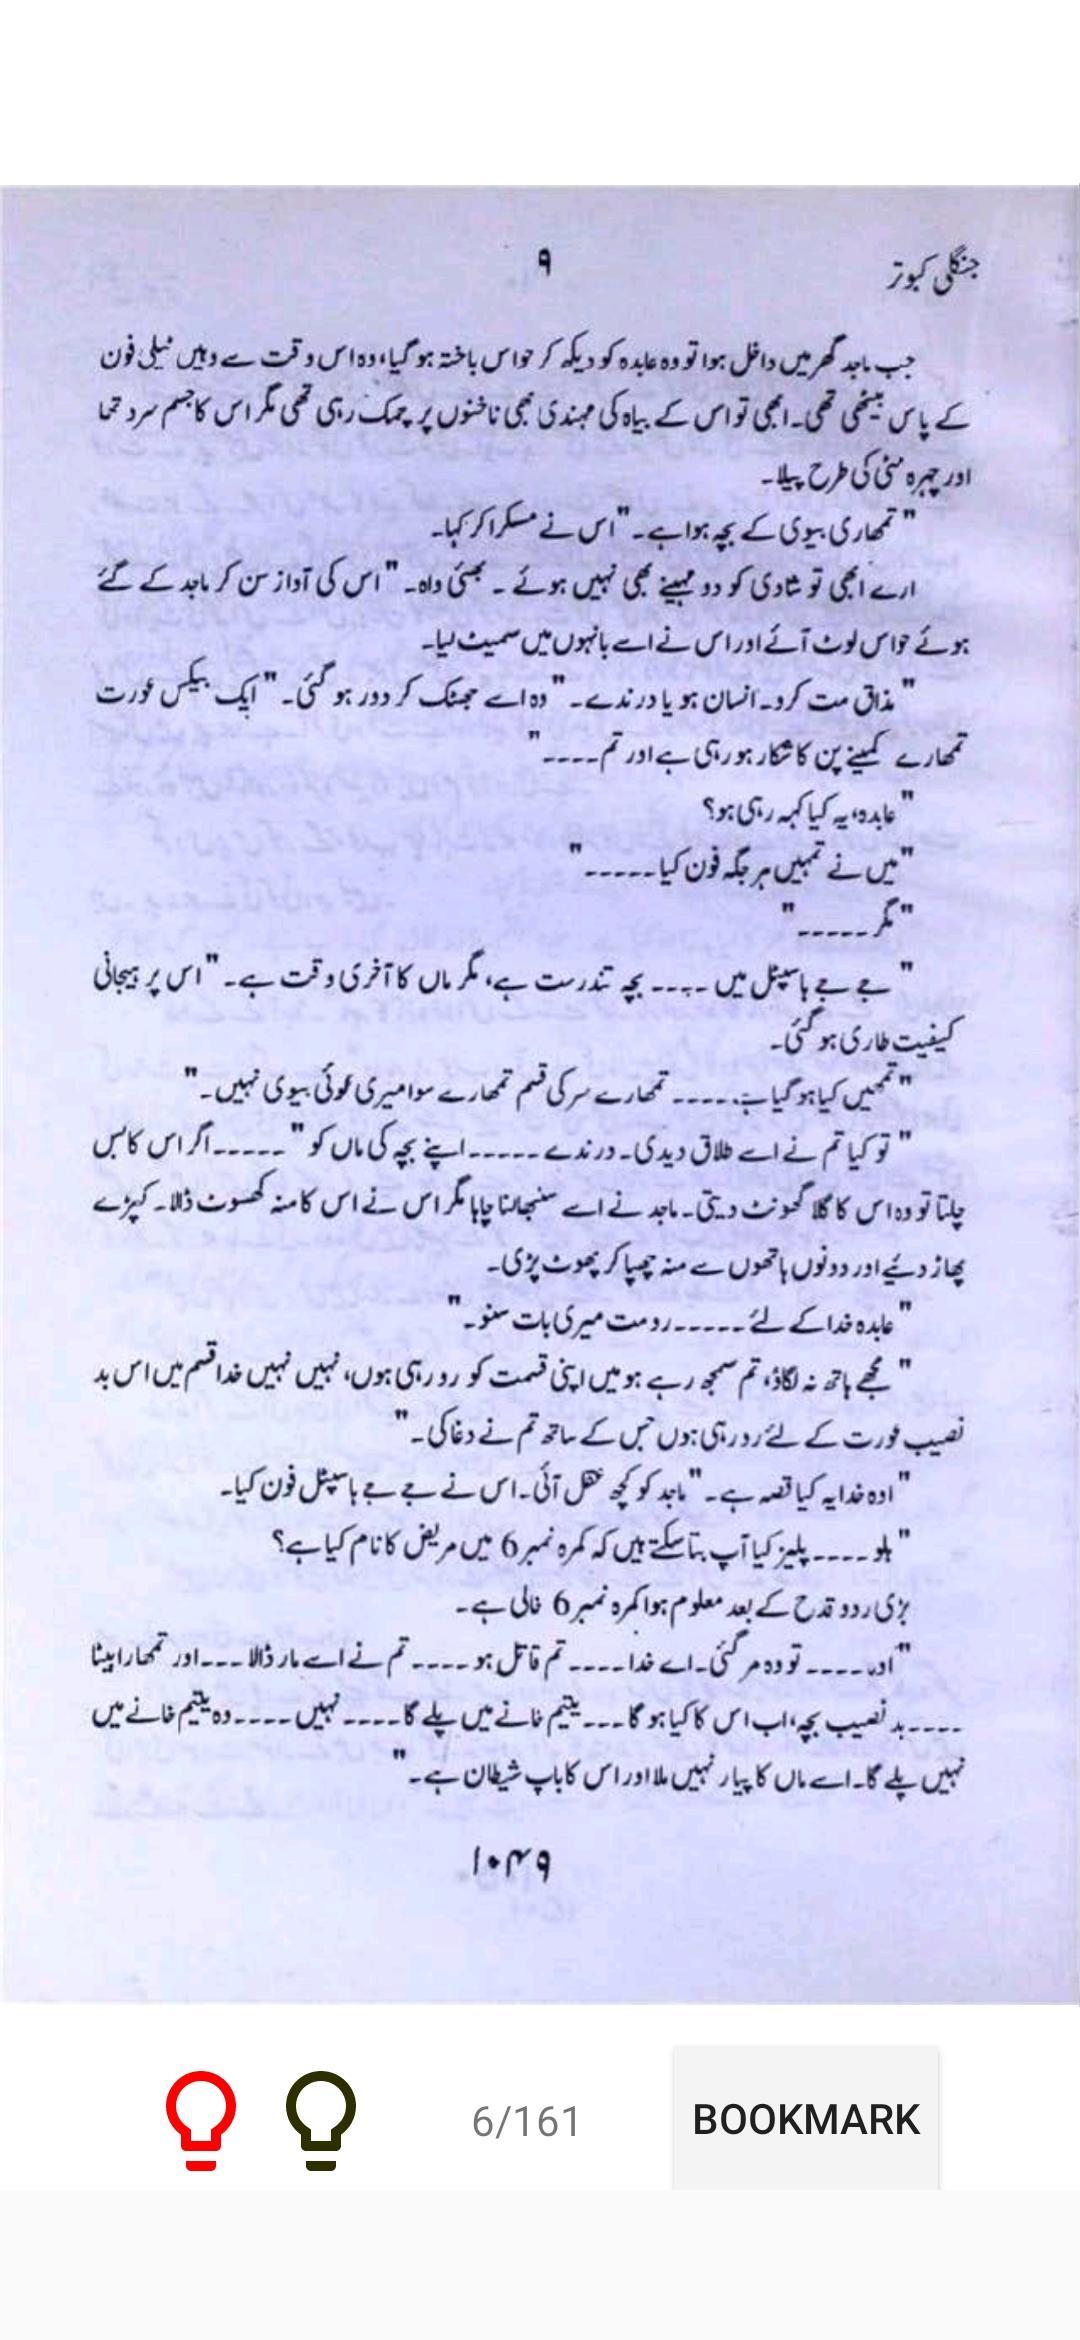 جنگلی کبوتر
۹
جب ماجد گھر میں داخل ہوا تو وہ عابدہ کو دیکھ کر حواس باختہ ہو گیا، وہ اس وقت سے وہیں ٹیلی فون
کے پاس بیٹھی تھی۔ ابھی تو اس کے بیاہ کی مہندی بھی ناخنوں پر چمک رہی تھی مگر اس کا جسم سرد تھا
اور چہرہ مٹی کی طرح پیلا۔
"تمھاری بیوی کے بچہ ہوا ہے۔" اس نے مسکرا کر کہا۔
ارے ابھی تو شادی کو دو مہینے بھی نہیں ہوئے۔ بھئی واہ۔" اس کی آواز سن کر ماجد کے گئے
ہوئے حواس لوٹ آئے اور اس نے اسے بانہوں میں سمیٹ لیا۔
"مذاق مت کرو۔ انسان ہو یا درندے۔" وہ اسے جھٹک کر دور ہو گئی۔" ایک بیکس عورت
تمھارے کمینے پن کا شکار ہو رہی ہے اور تم ----"
"عابدہ، یہ کیا کہہ رہی ہو؟
"میں نے تمہیں ہر جگہ فون کیا -----"
"مگر -----"
"جے جے ہاسپٹل میں ---- بچہ تندرست ہے، مگر ماں کا آخری وقت ہے۔" اس پر ہیجانی
کیفیت طاری ہو گئی۔
"تمھیں کیا ہو گیا ہے ----- تمھارے سر کی قسم تمھارے سوا میری کوئی بیوی نہیں۔"
"تو کیا تم نے اسے طلاق دیدی۔ درندے ----- اپنے بچہ کی ماں کو" ----- اگر اس کا بس
چلتا تو وہ اس کا گلا گھونٹ دیتی۔ ماجد نے اسے سنبھالنا چاہا مگر اس نے اس کا منہ کھسوٹ ڈالا۔ کپڑے
پھاڑ دئیے اور دونوں ہاتھوں سے منہ چھپا کر پھوٹ پڑی۔
"عابدہ خدا کے لئے ----- رو مت میری بات سنو۔"
"مجھے ہاتھ نہ لگاؤ، تم سمجھ رہے ہو میں اپنی قسمت کو رو رہی ہوں، نہیں نہیں خدا قسم میں اس بد
نصیب عورت کے لئے رو رہی ہوں جس کے ساتھ تم نے دغا کی۔"
"اوہ خدا یہ کیا قصہ ہے۔" ماجد کو کچھ عقل آئی۔ اس نے جے جے ہاسپٹل فون کیا۔
"ہلو ---- پلیز کیا آپ بتا سکتے ہیں کہ کمرہ نمبر 6 میں مریض کا نام کیا ہے؟
بڑی ردو قدح کے بعد معلوم ہوا کمرہ نمبر 6 خالی ہے۔
"اوہ ---- تو وہ مر گئی۔ اے خدا ---- تم قاتل ہو ---- تم نے اسے مار ڈالا --- اور تمھارا بیٹا
---- بد نصیب بچہ، اب اس کا کیا ہو گا --- یتیم خانے میں پلے گا ---- نہیں ---- وہ یتیم خانے میں
نہیں پلے گا۔ اسے ماں کا پیار نہیں ملا اور اس کا باپ شیطان ہے۔"
۱۰۴۹
6/161
BOOKMARK